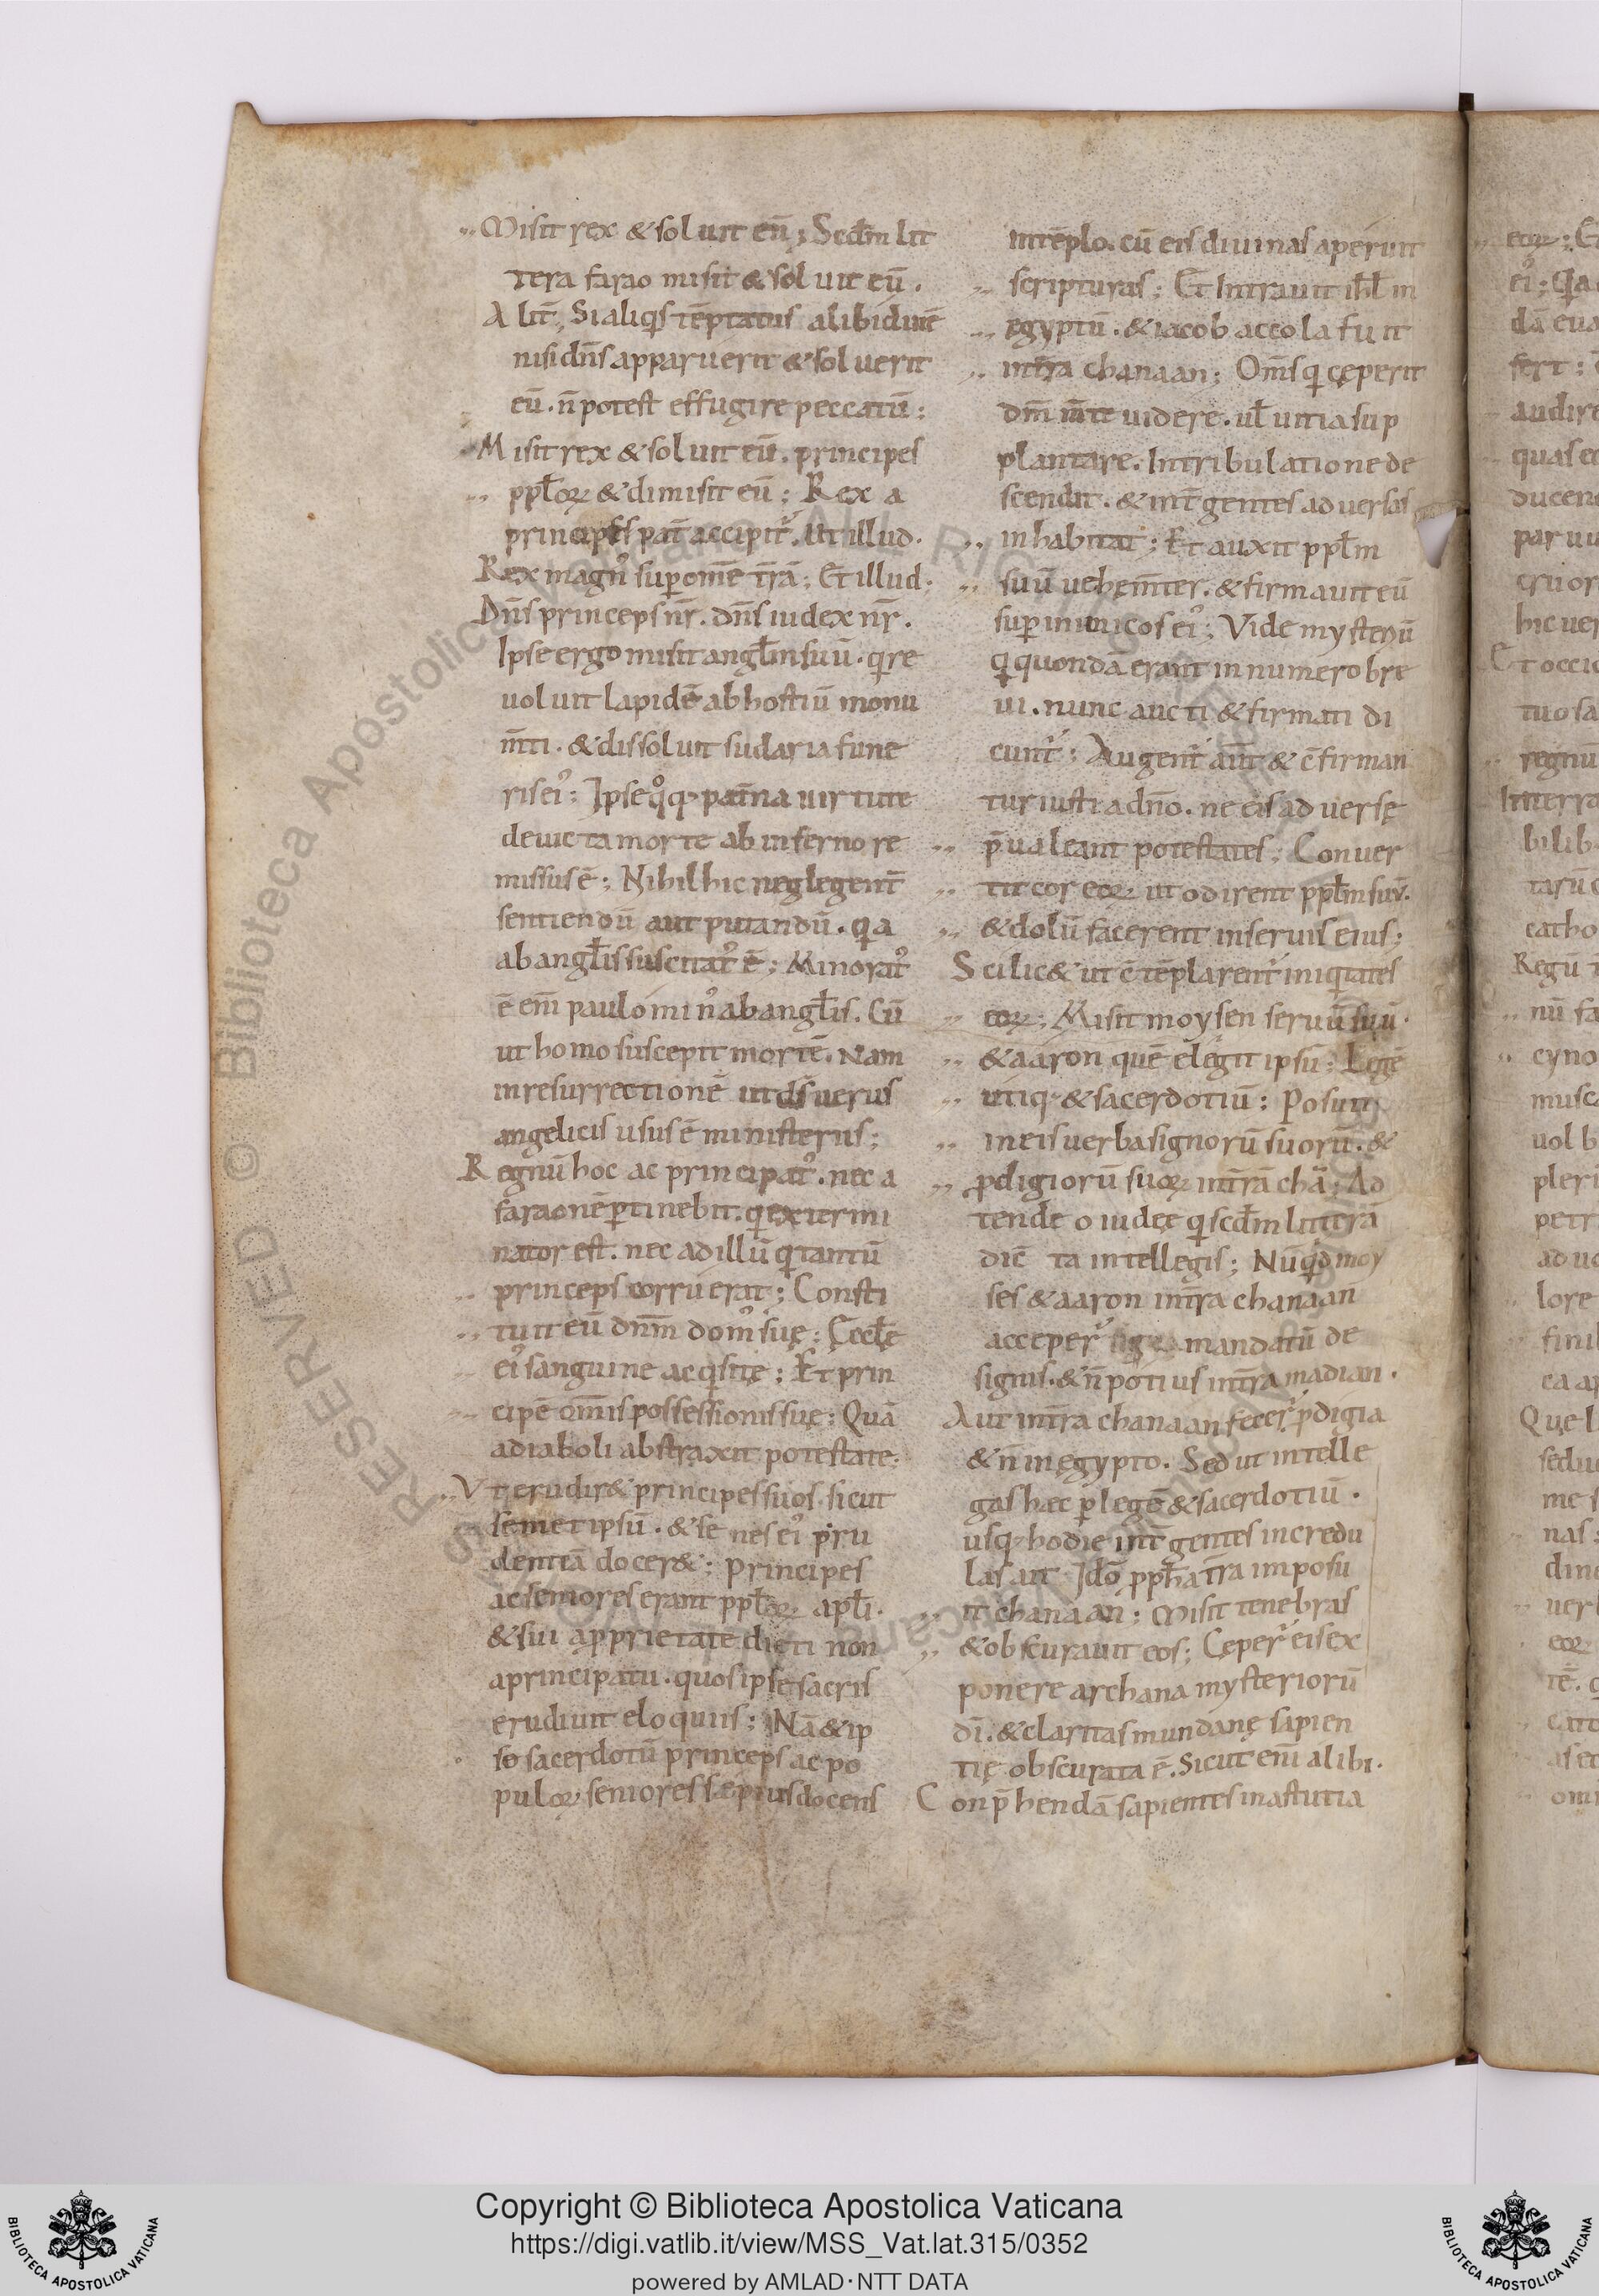 Misit rex & soluit eū; Scdm̄ lit
tera farao misit & soluit eū.
A lit̄, Si aliqis tēptatus a libidine
nisi dn̄s apparuerit & soluerit
eū. n̄ potest effugire peccatū;
Misit rex & soluit eū. principes
pplorꝝ & dimisit eū; Rex a
principes pat̄ accipit. Ut illud.
Rex magnꝰ sup omē trā; Et illud;
Dn̄s princeps nr̄. dn̄s iudex nr̄.
Ipse ergo misit angłm suū. q re
uoluit lapidē ab hostiū monu
m̄ti. & dissoluit sudaria fune
ris eiꝰ; Ipse qoq; pat̄na uirtute
deuicta morte ab inferno re
missus ē; Nihil hic neglegent̄
sentiendū aut putandū. qa
ab angłis suscitatꝰ ē; Minoratꝰ
ē em̄ paulo minꝰ ab angłis. Cū
ut homo suscepit mortē. Nam
in resurrectionē ut ds̄ uerus
angelicis usus ē ministeriis;
Regnū hoc ac principatꝰ. nec a
faraonē ptinebit. q extermi
nator est. nec ad illū q tantū
princeps corruerat; Consti
tuit eū dnm̄ domꝰ suę; Ęccłę
eiꝰ sanguine acqisitę; Et prin
cipē om̄is possessionis suę; Quā
a diaboli abstraxit potestate;
Vt erudir& principes suos. sicut
semetipsū. & senes eiꝰ pru
dentiā docer&; Principes
ac seniores erant pplorꝝ apłi.
& sui apprietate dicti non
a principatu. quos ipse sacris
erudiuit eloquiis; Nā & ip
se sacerdotū princeps ac po
pulorꝝ seniores sępius docens
in tēplo. cū eis diuinas aperuit
scripturas; Et Intrauit ihł in
egyptū. & iacob accola fuit
in tr̄ra chanaan; Om̄s qi cęperit
dm̄ m̄te uidere. uł uitia sup
plantare. In tribulatione de
scendit. & int̄ gentes aduersas
inhabitat; Et auxit ppłm
suū uehem̄ter. & firmauit eū
sup inimicos eiꝰ; Vide mysteriū
qi quondā erant in numero bre
ui. nunc aucti & firmati di
cunt̄; Augent̄ aūt & c̄firman
tur iusti a dn̄o. ne eis aduersę
p̄ualeant potestates; Conuer
tit cor eorꝝ ut odirent ppłm suū.
& dolū facerent in seruis eius;
Scilic& ut c̄tēplarent̄ iniqitates
eorꝝ; Misit moysen seruū suū.
& aaron quē elegit ipsū; Legē
utiq; & sacerdotiū; Posuit
in eis uerba signorū suorū. &
pdigiorū suorꝝ in trā chā; Ad
tende o iudęe qi scdm̄ litterā
diē ta intellegis; Nūqid moy
ses & aaron in tr̄ra chanaan
acceperꝰ mandatū de
signis. & n̄ potius in tr̄ra madian.
Aut in tr̄ra chanaan fecerꝰ pdigia
& n̄ in ęgypto. Sed ut intelle
gas hęc p legē & sacerdotiū.
usq; hodie int̄ gentes incredu
las ait Idō pphā tr̄a imposu
it chanaan; Misit tenebras
& obscurauit eos; Cęperꝰ eis ex
ponere archana mysteriorū
dī. & claritas mundanę sapien
tię obscurata ē. Sicut em̄ alibi.
Conp̄hendā sapientes in astutia
RESERVED © Biblioteca Apostolica Vaticana ALL RIGHTS RESERVED
Copyright © Biblioteca Apostolica Vaticana
https://digi.vatlib.it/view/MSS_Vat.lat.315/0352
powered by AMLAD·NTT DATA
BIBLIOTECA APOSTOLICA VATICANA
BIBLIOTECA APOSTOLICA VATICANA